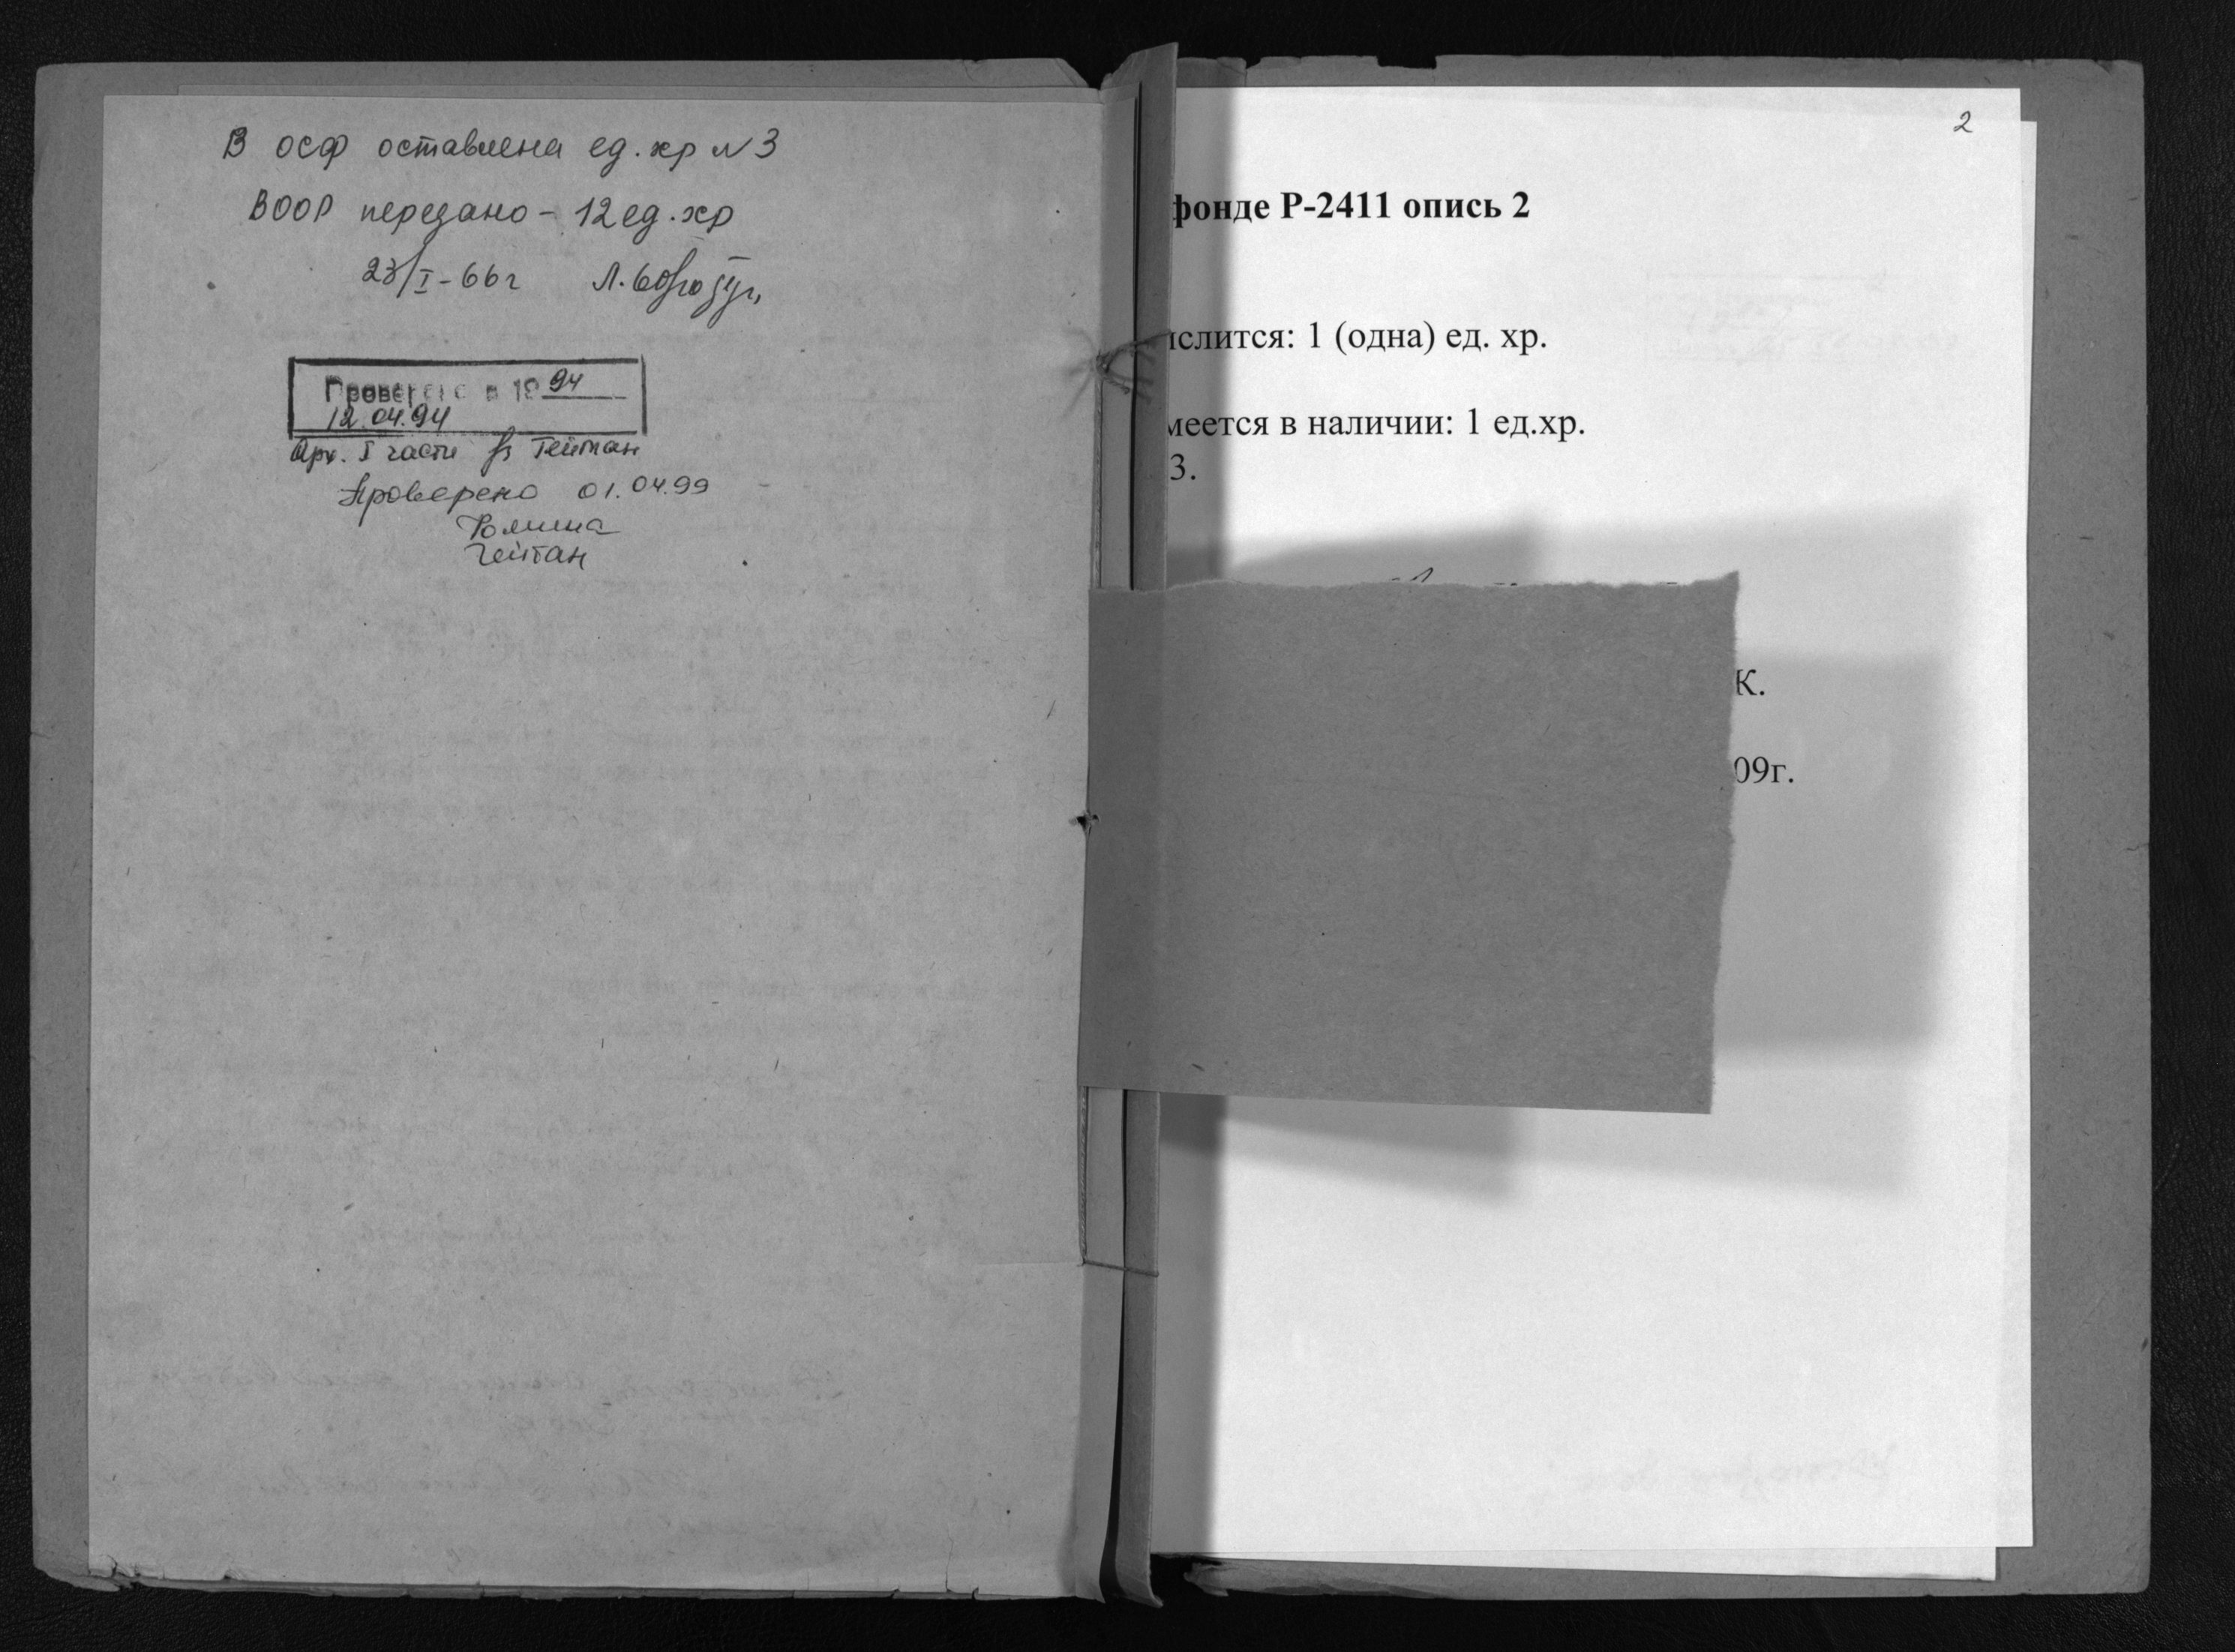 В осф оставлена ед. хр № 3
ВООР передано - 12 ед. хр
23/I-66г Л.
Проверено в 1994
12.04.94
Арх. I части Гейман
Проверено 01.04.99
Гейман
2
фонде Р-2411 опись 2
ислится: 1 (одна) ед. хр.
меется в наличии: 1 ед.хр.
3.
К.
09г.